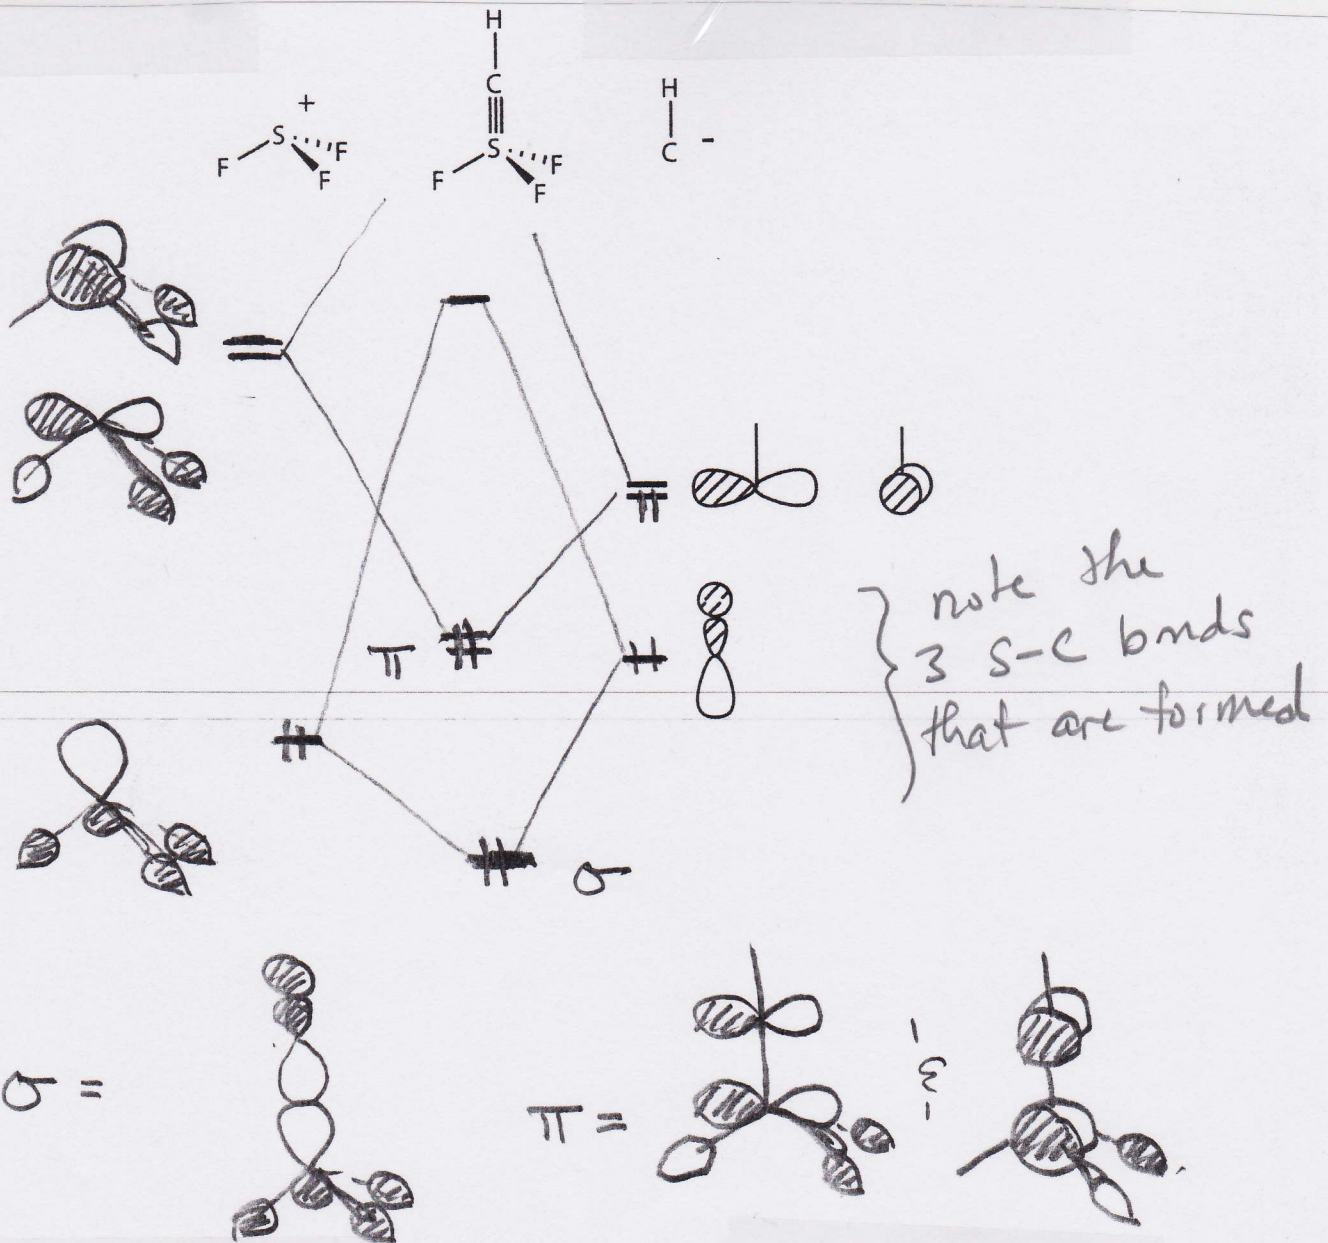 H
+
C
H
S
F
F
F
S
F
F
F
C -
π
note the
3 S-C bonds
that are formed
σ
σ =
π =
-&-